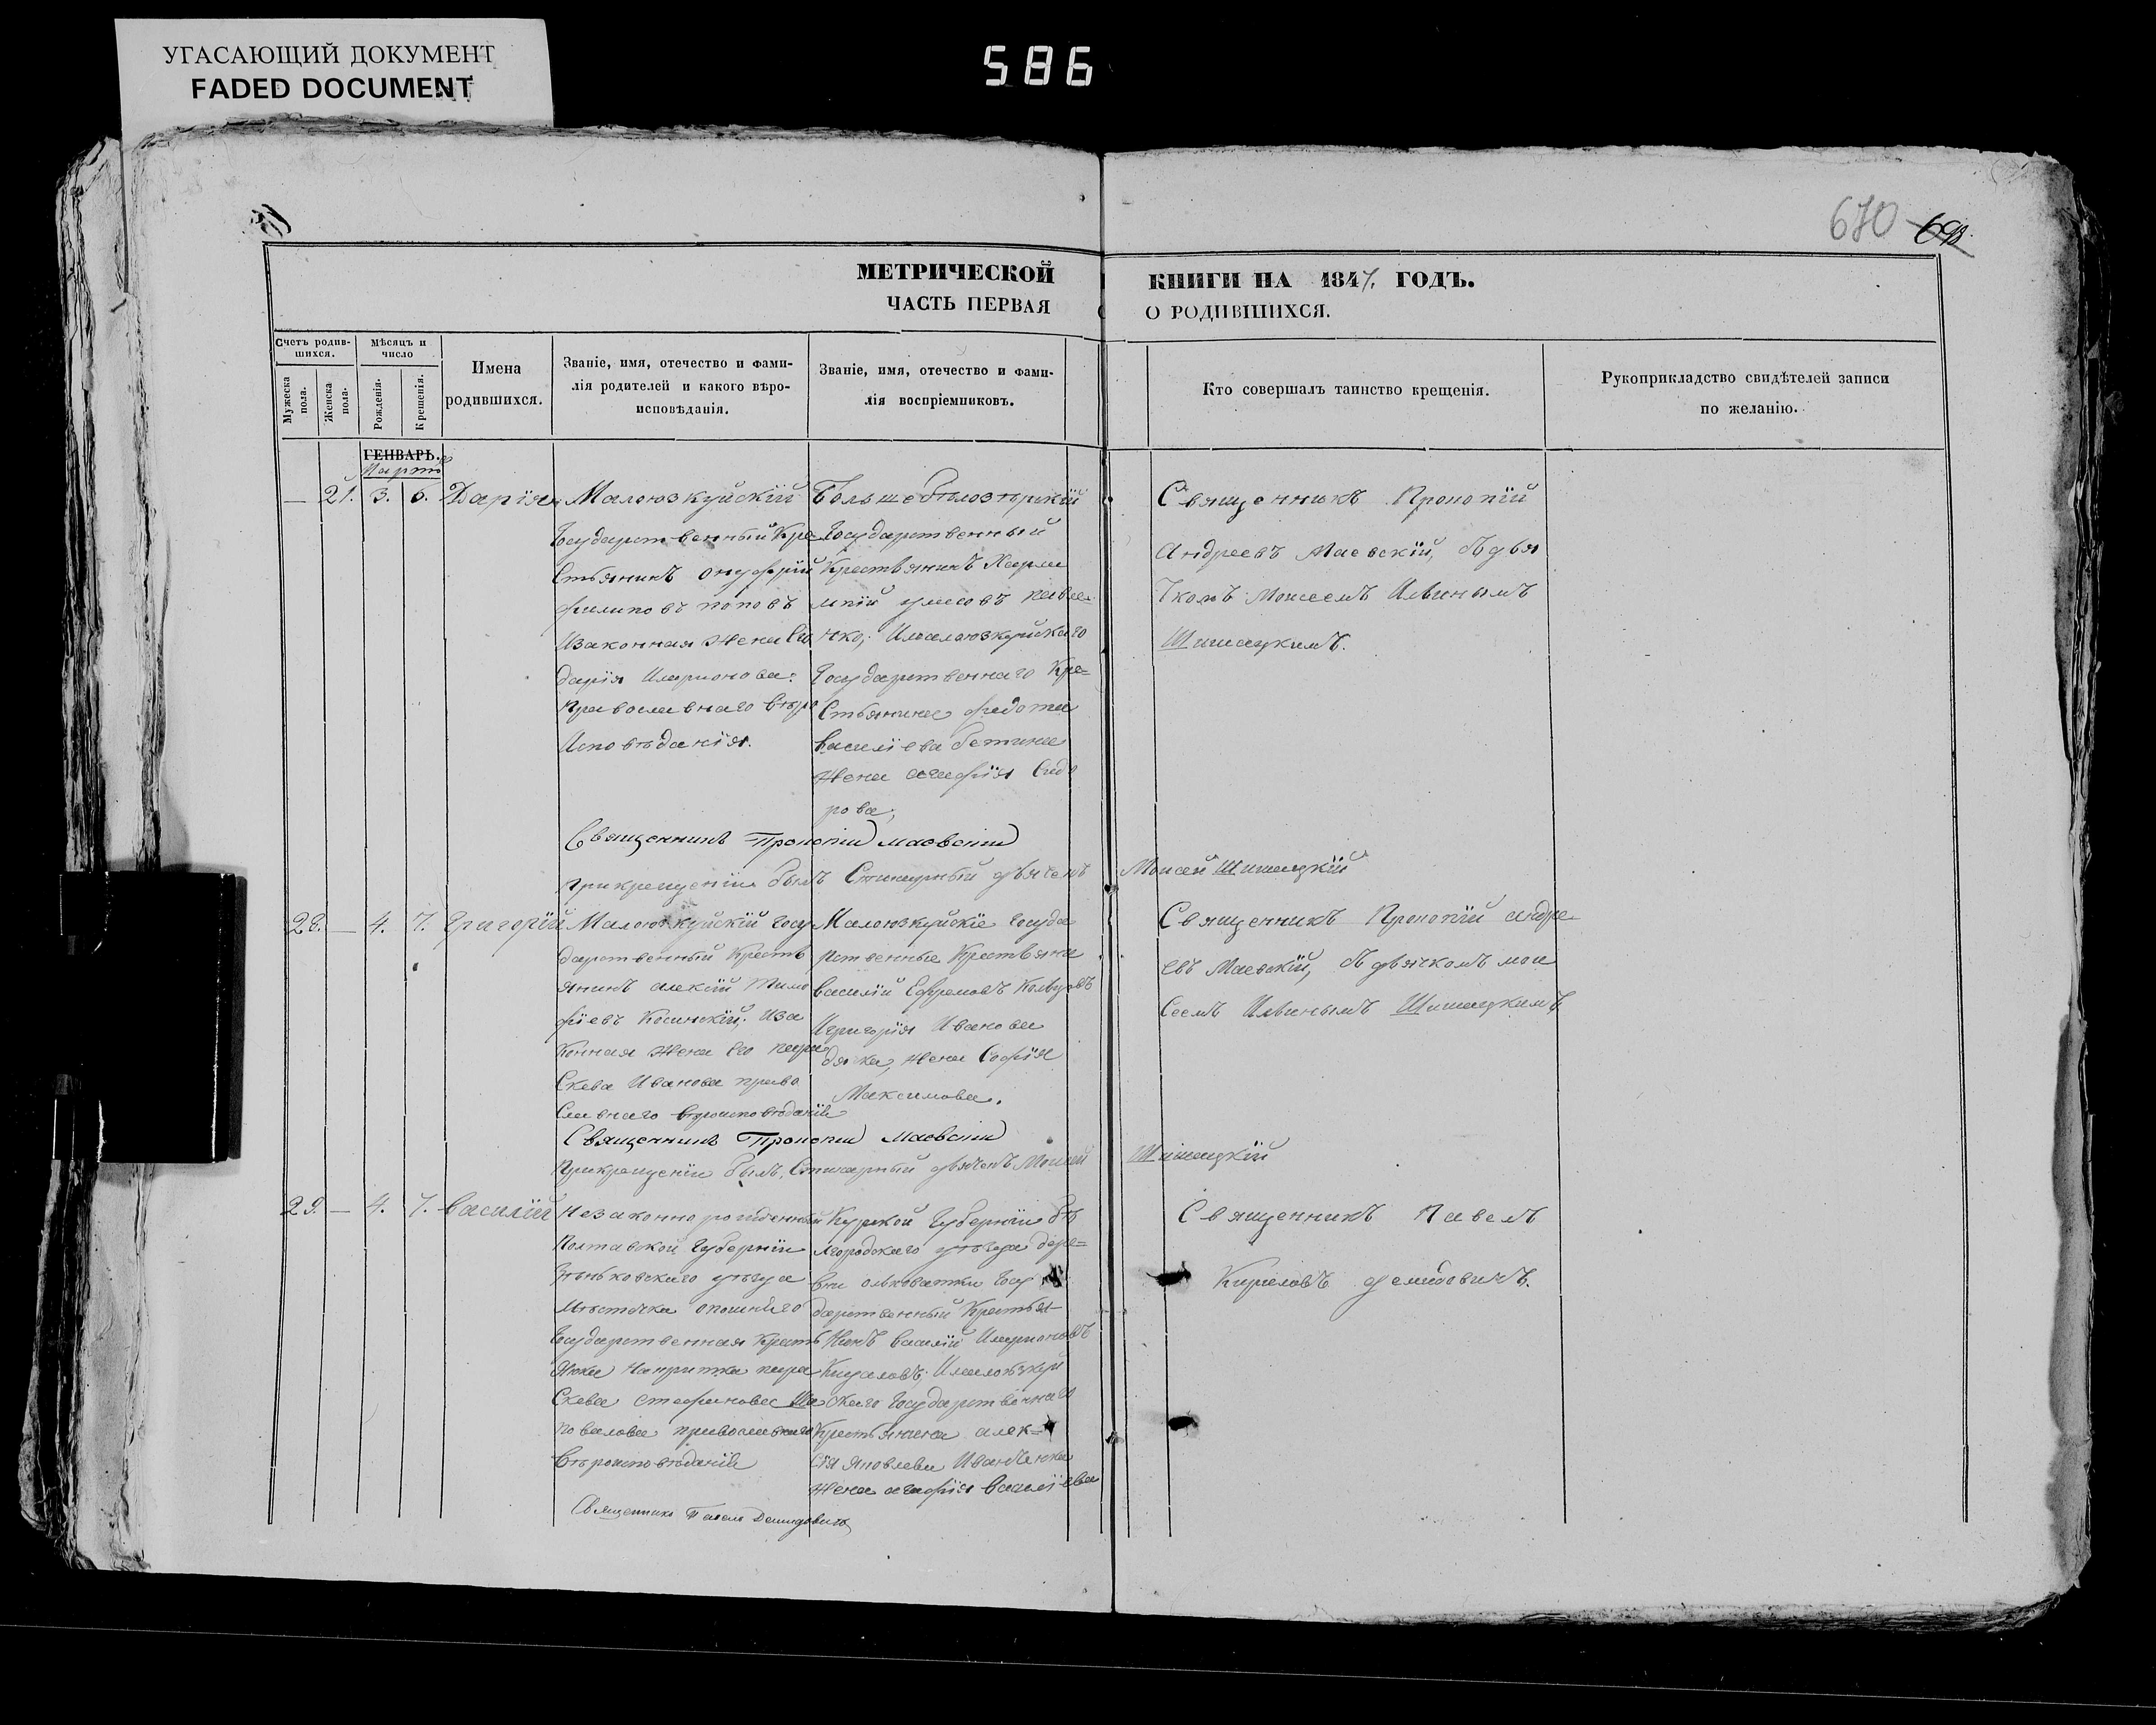 УГАСАЮЩИЙ ДОКУМЕНТ
FADED DOCUMENT
586
670 698.
МЕТРИЧЕСКОЙ КНИГИ НА 1847. ГОДЪ.
ЧАСТЬ ПЕРВАЯ О РОДИВШИХСЯ.
Счетъ родив-
шихся.
Мужеска пола.
Женска пола.
Мѣсяцъ и
число
Рожденія.
Крещенія.
Имена
родившихся.
Званіе, имя, отечество и фами-
лія родителей и какого вѣро-
исповѣданія.
Званіе, имя, отечество и фами-
лія воспріемниковъ.
Кто совершалъ таинство крещенія.
Рукоприкладство свидѣтелей записи
по желанію.
ГЕНВАРЬ.
Мартъ
— 21. 3. 6. Дарія
Малоюзкуйскій
Государственный Кре
стьянинъ Онуфрій
филиповъ поповъ
Изаконная Жена Его
дарія Иларионова:
Православнаго вѣро
Исповѣданія.
Большебѣлозѣрскій
Государственный
Крестьянинъ Харла
мпій
нко; Ималоюзкуйскаго
Государственнаго Кре=
стьянина федота
василіева
Жена агафія Сидо
рова,
Священникъ Прокопій
Андреевъ Маевскій, съ дья
чкомъ Моисеемъ Ильинымъ
Шишацкимъ.
Священникъ Прокопій Маевскій
При крещеніи былъ Стихарный дьячекъ Моисей Шишацкій
28. — 4. 7. Григорій
Малоюзкуйскій Госу
дарственный Кресть
янинъ алексій Тимо
фіевъ Косинскій; Иза
конная Жена Его пара
Скева Иванова право
славнаго вѣроисповѣданія
Малоюзкуйскіе Госуда
рственные Крестьяни
василій Ефремовъ Кольцовъ
Игригорія Иванова
Жена Софія
Максимова.
Священникъ Прокопій андре
евъ Маевскій, съ дьячкомъ мои
Сеемъ Ильинымъ Шишацкимъ
Священникъ Прокопій Маевскій
При крещеніи былъ, Стихарный дьячекъ Моисей Шишацкій
29. — 4. 7. василій
Незаконнорожденный
Полтавской Губерніи
Зѣньковскаго уѣзда
Мѣстечка опошняго
Государственная Кресть
Янка пара
Скева стефанова Ша
повалова православнаго
Вѣроисповѣданія
Курской Губерніи бѣ
лгородскаго уѣзда дере=
вни ольховатки Госу
дарственный Крестья-
Нинъ василій Иларионовъ
Ималоюзкуй
скаго Государственнаго
Крестьянина алек=
сія Яковлева Иванченка
Жена агафія василіева
Священникъ Павелъ
Кириловъ демидовичъ.
Священникъ Павелъ Демидовичъ